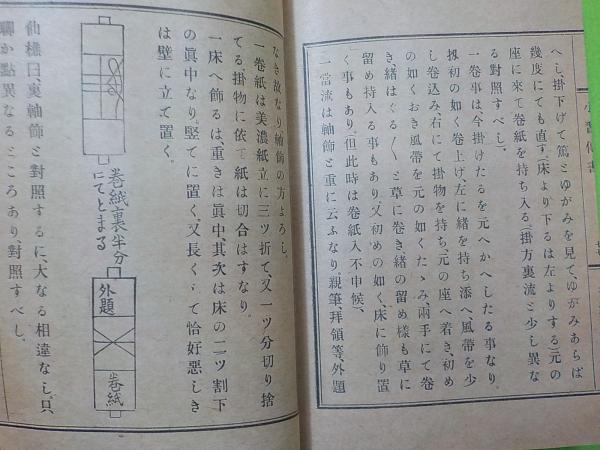 へし、掛下げて篤とゆがみを見て、ゆがみあらば
幾度にても直す、(床より下るは左よりする)元の
座に来て巻紙を持ち入る、(掛方裏流と少し異な
る對照すべし、
一巻事は今掛けたるを元へかへしたる事なり、
最初の如く巻上げ、左に緒を持ち添へ、風帶を少
し巻込み、右にて掛物を持ち、元の座へ着き、初め
の如くおき風帶を元の如くたゝみ、兩手にて巻
き、緒はぐる〱と草に巻き緒の留め樣も草に
留め持入る事もあり、又初めの如く、床に飾り置
く事もあり、(但此時は巻紙入不申候、
一當流は軸飾と重に云ふなり。親筆、拜領等、外題
なき故なり軸飾の方よろし、
一巻紙は美濃紙立に三ツ折て、又一ツ分切り捨
てる掛物に依て紙は切合はすなり、
一床へ飾るは、重きは眞中、其次は床の二ツ割下
の眞中なり。竪てに置く、又長くして恰好悪しき
は壁に立て置く。
巻紙裏半分
にてとまる
外題
巻紙
仙樵曰、裏軸飾と對照するに、大なる相違なし、只
聊か點異なるところあり、對照すべし、